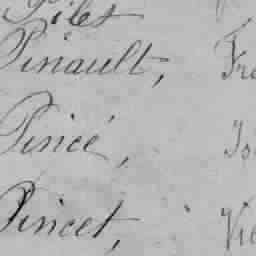 Pilet
Pinault, Fra
Pincé, Is
Pincet, Vic